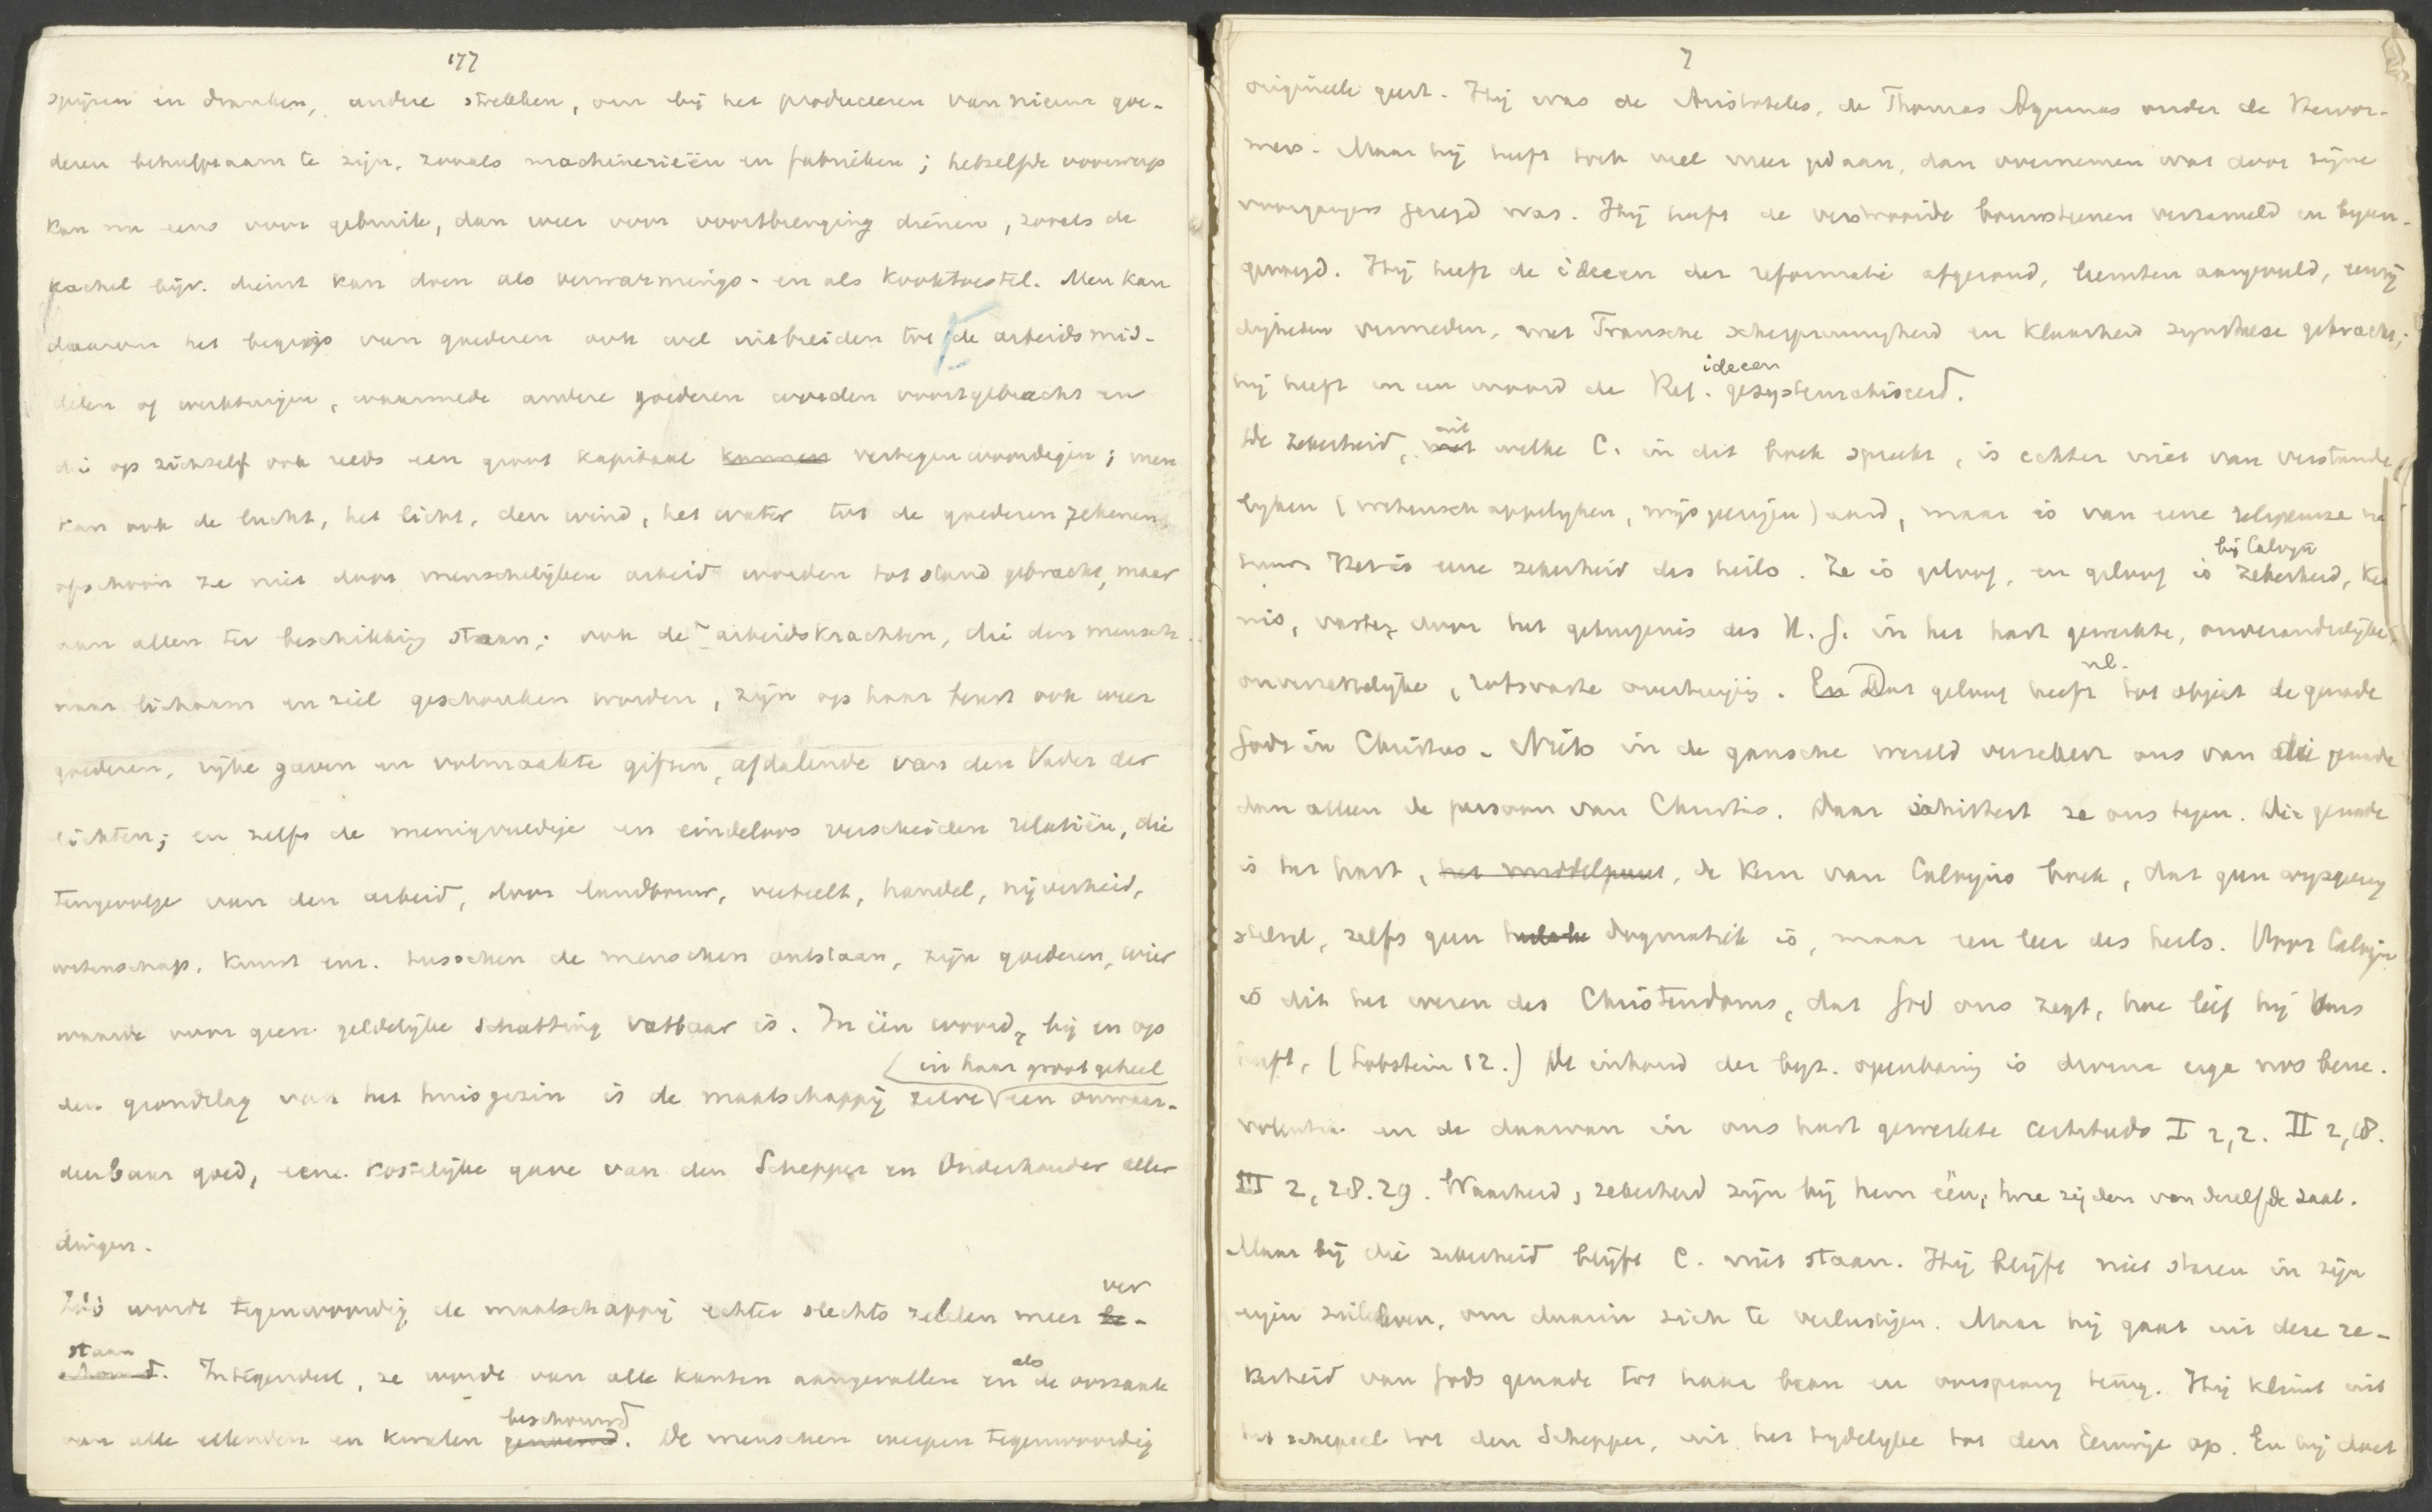 177
spijzen en dranken, andere strekken, om bij het produceeren van nieuwe goe-
deren behulpzaam te zijn, zooals machinerieën en fabrieken; hetzelfde voorwerp
kan nu eens voor gebruik, dan weer voor voortbrenging dienen, zooals de
kachel bijv. dienst kan doen als verwarmings- en als kooktoestel. Men kan
daarom het begrip van goederen ook wel uitbreiden tot de arbeidsmid-
delen of werktuigen, waarmede andere goederen worden voortgebracht en
die op zichzelf ook reeds een groot kapitaal kunnen vertegenwoordigen; men
kan ook de lucht, het licht, den wind, het water tot de goederen rekenen,
ofschoon ze niet door menschelijken arbeid worden tot stand gebracht, maar
aan allen ter beschikking staan; ook de arbeidskrachten, die den mensch
naar lichaam en ziel geschonken worden, zijn op haar beurt ook weer
goederen, rijke gaven en volmaakte giften, afdalende van den Vader der
lichten; en zelfs de menigvuldige en eindeloos verscheiden relatiën, die
tengevolge van den arbeid, door landbouw, veeteelt, handel, nijverheid,
wetenschap, kunst enz. tusschen de menschen ontstaan, zijn goederen, wier
waarde voor geen geldelijke schatting vatbaar is. In één woord, bij en op
in haar groot geheel
den grondslag van het huisgezin is de maatschappij zelve een onwaar-
deerbaar goed, eene kostelijke gave van den Schepper en Onderhouder aller
dingen.
ver
Zóó wordt tegenwoordig de maatschappij echter slechts zelden meer be-
staan
schouwd. Integendeel, ze wordt van alle kanten aangevallen en als de oorzaak
beschouwd
van alle ellenden en kwalen genoemd. De menschen werpen tegenwoordig
7
origineele geest. Hij was de Aristoteles, de Thomas Aquinas onder de Hervor-
mers. Maar hij heeft toch veel meer gedaan, dan overnemen wat door zijne
voorgangers gezegd was. Hij heeft de verstrooide bouwsteenen verzameld en bijeen-
gevoegd. Hij heeft de ideeen der reformatie afgerond, leemten aangevuld, eenzij
digheden vermeden, met Fransche scherpzinnigheid en klaarheid synthese gebracht;
ideeen
hij heeft in een woord de Ref. gesystematiseerd.
uit
De zekerheid, met welke C. in dit boek spreekt, is echter niet van verstande
lyken (wetenschappelyken, wijsgeerigen) aard, maar is van eene religieuze na
bij Calvyn
tuur. Het is eene zekerheid des heils. Ze is geloof, en geloof is zekerheid, ken
nis, vaste, door het getuigenis des H. G. in het hart gewerkte, onveranderlijke,
nl.
onverzettelijke, rotsvaste overtuiging. En Dat geloof heeft tot object de genade
Gods in Christus. Niets in de gansche wereld verzekert ons van die genade
dan alleen de persoon van Christus. Daar schittert ze ons tegen. Die genade
is het hart, het middelpunt, de kern van Calvijns boek, dat geen wysgeerig
stelsel, zelfs geen dogmatiek is, maar een leer des heils. Voor Calvijn
is dit het wezen des Christendoms, dat God ons zegt, hoe lief hij ons
heeft. (Lobstein 12.) De inhoud der byz. openbaring is divina erga nos bene-
volentia en de daarvan in ons hart gewerkte certitudo I 2,2. II 2,18.
III 2, 28. 29. Waarheid, zekerheid zijn bij hem één, twee zijden van dezelfde zaak.
Maar bij die zekerheid blijft C. niet staan. Hij blijft niet staren in zijn
eigen zieleleven, om daarin zich te verlustigen. Maar hij gaat uit deze ze-
kerheid van Gods genade tot haar bron en oorsprong terug. Hij klimt uit
het schepsel tot den Schepper, uit het tydelyke tot den Eeuwige op. En hij doet